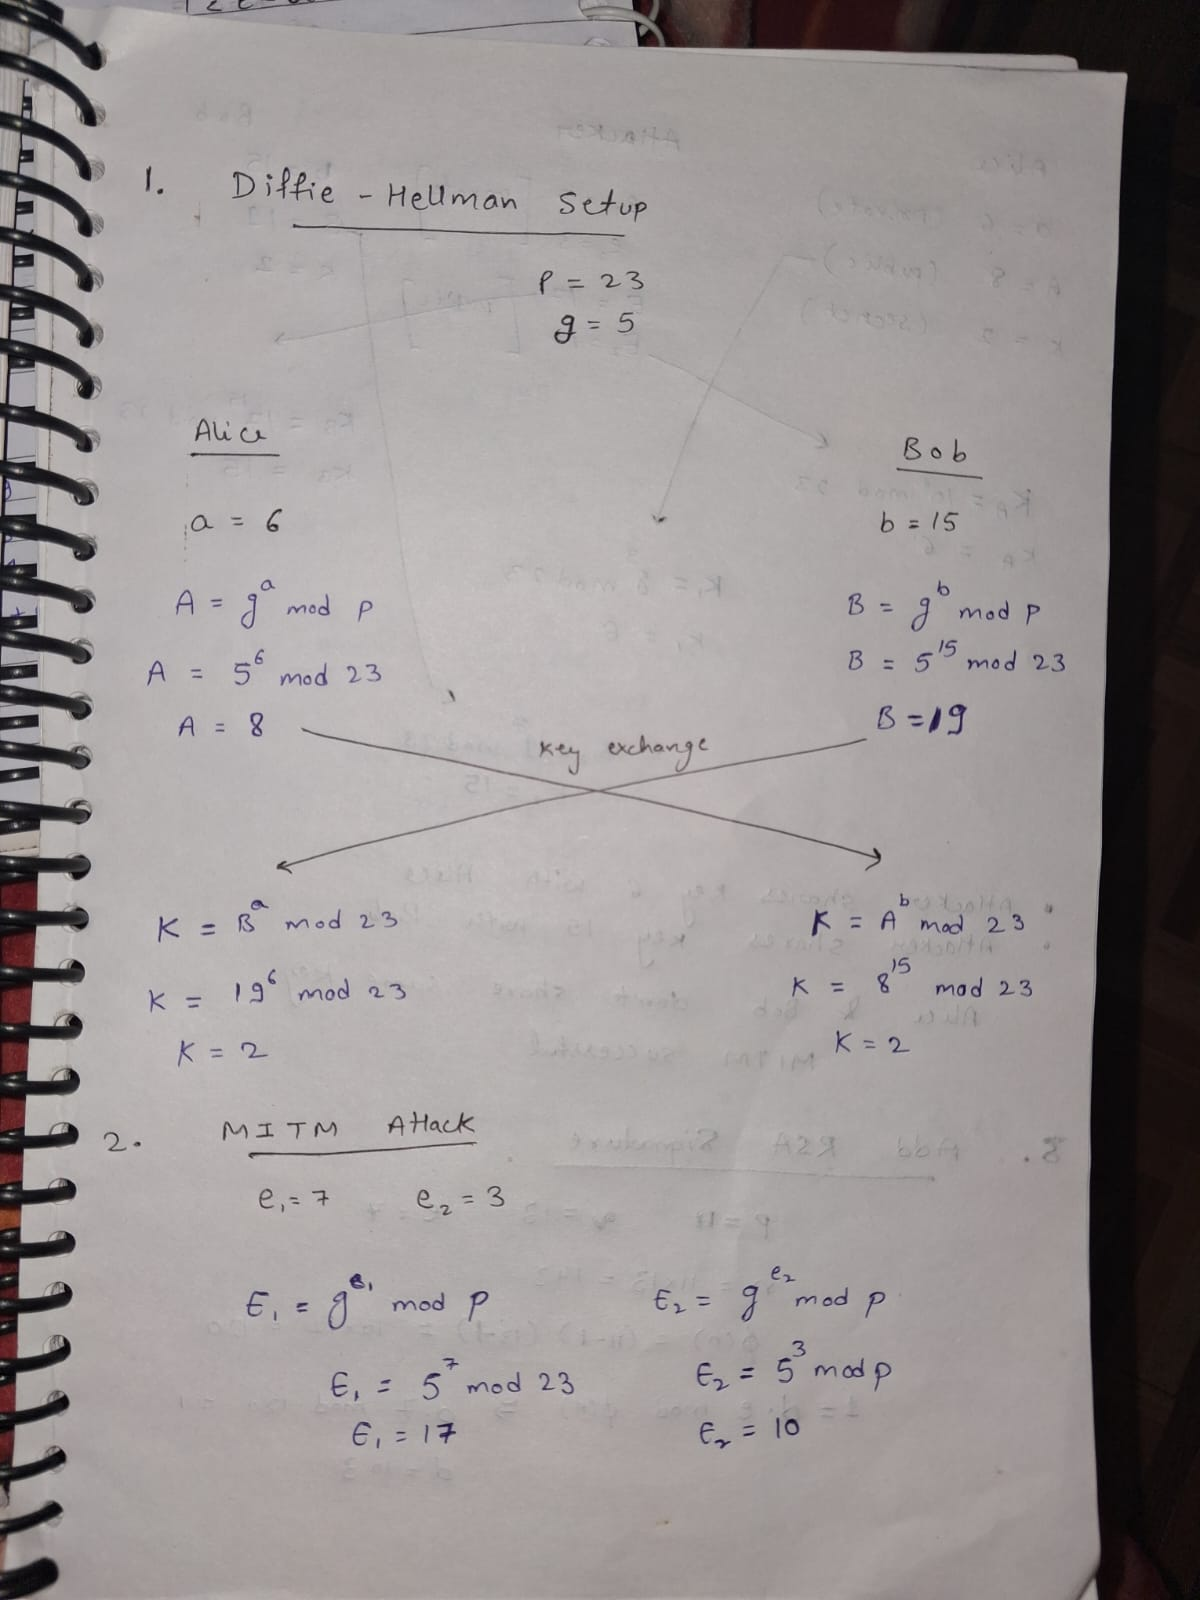 1. Diffie - Hellman Setup
p = 23
g = 5
Alice
a = 6
A = g^a mod p
A = 5^6 mod 23
A = 8
Bob
b = 15
B = g^b mod p
B = 5^15 mod 23
B = 19
key exchange
K = B^a mod 23
K = 19^6 mod 23
K = 2
K = A^b mod 23
K = 8^15 mod 23
K = 2
2. MITM Attack
e₁ = 7 e₂ = 3
E₁ = g^e₁ mod p
E₁ = 5^7 mod 23
E₁ = 17
E₂ = g^e₂ mod p
E₂ = 5^3 mod p
E₂ = 10